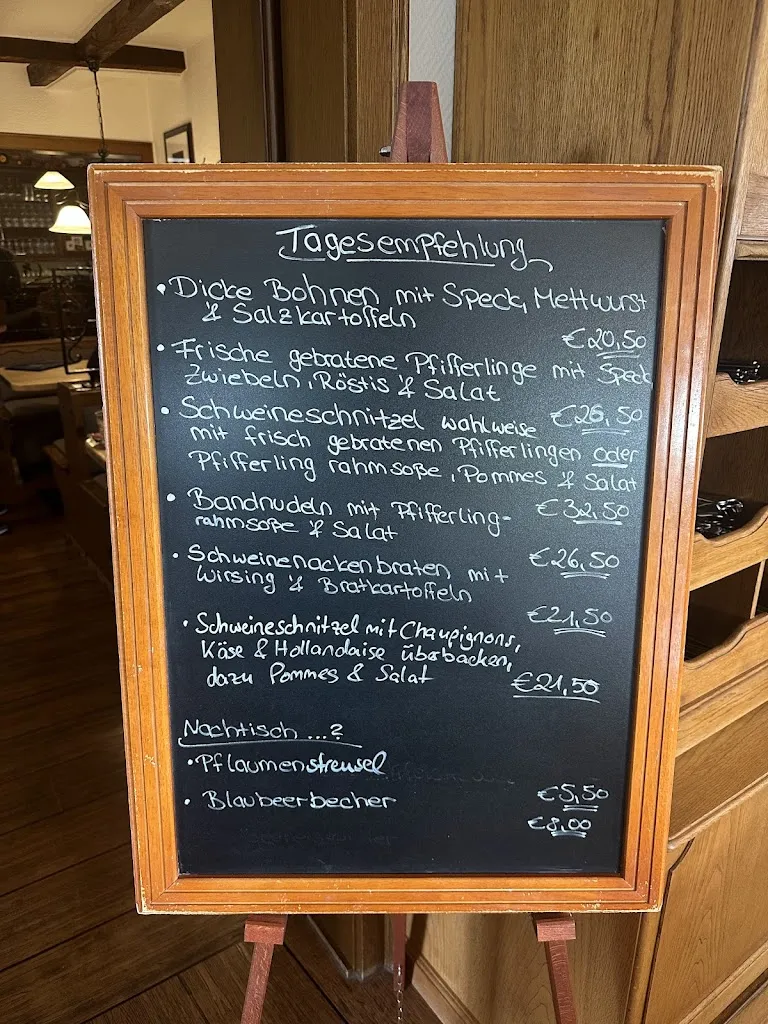 Tagesempfehlung
• Dicke Bohnen mit Speck, Mettwurst
& Salzkartoffeln
€20,50
• Frische gebratene Pfifferlinge mit Speck
Zwiebeln, Röstis & Salat
€26,50
• Schweineschnitzel wahlweise
mit frisch gebratenen Pfifferlingen oder
Pfifferling rahmsoße, Pommes & Salat
€32,50
• Bandnudeln mit Pfifferling-
rahmsoße & Salat
€26,50
• Schweinenackenbraten mit
Wirsing & Bratkartoffeln
€21,50
• Schweineschnitzel mit Champignons,
Käse & Hollandaise überbacken,
dazu Pommes & Salat
€21,50
Nachtisch ...?
• Pflaumenstreusel
€5,50
• Blaubeerbecher
€8,00